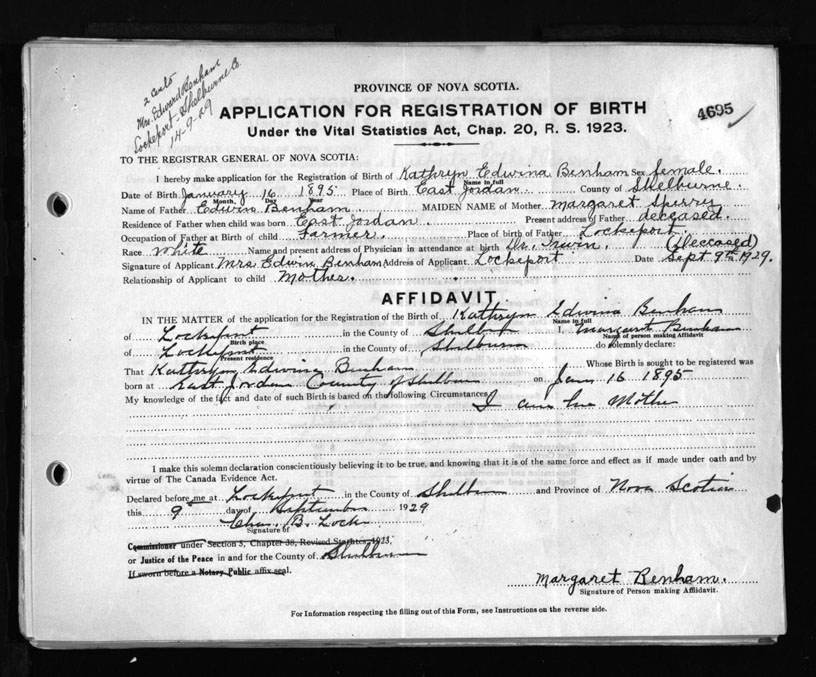 2 certs
Mrs. Edward Benham
Lockeport Shelburne Co.
14-9-29
PROVINCE OF NOVA SCOTIA.
4695
APPLICATION FOR REGISTRATION OF BIRTH
Under the Vital Statistics Act, Chap. 20, R. S. 1923.
TO THE REGISTRAR GENERAL OF NOVA SCOTIA:
I hereby make application for the Registration of Birth of Kathryn Edwina Benham Sex female.
Name in full
Date of Birth January 16 1895 Place of Birth East Jordan County of Shelburne.
Month, Day Year
Name of Father Edwin Benham MAIDEN NAME of Mother Margaret Sperry
Residence of Father when child was born East Jordan Present address of Father deceased.
Occupation of Father at Birth of child Farmer. Place of birth of Father Lockeport.
Race White Name and present address of Physician in attendance at birth Dr. Irwin. (deceased)
Signature of Applicant Mrs Edwin Benham Address of Applicant Lockeport Date Sept 9th 1929.
Relationship of Applicant to child Mother.
AFFIDAVIT
IN THE MATTER of the application for the Registration of the Birth of Kathryn Edwina Benham
Name in full
of Lockeport in the County of Shelburne I, Margaret Benham
Birth place Name of person making Affidavit
of Lockeport in the County of Shelburne do solemnly declare:
Present residence
That Kathryn Edwina Benham Whose Birth is sought to be registered was
born at East Jordan County of Shelburne on Jan 16 1895
My knowledge of the fact and date of such Birth is based on the following Circumstances I am her Mother
I make this solemn declaration conscientiously believing it to be true, and knowing that it is of the same force and effect as if made under oath and by
virtue of The Canada Evidence Act.
Declared before me at Lockeport in the County of Shelburne and Province of Nova Scotia
this 9th day of September 1929
Chas. B. Locke
Signature of
Commissioner under Section 5, Chapter 38, Revised Statutes, 1923,
or Justice of the Peace in and for the County of Shelburne
If sworn before a Notary Public affix seal.
Margaret Benham.
Signature of Person making Affidavit.
For Information respecting the filling out of this Form, see Instructions on the reverse side.